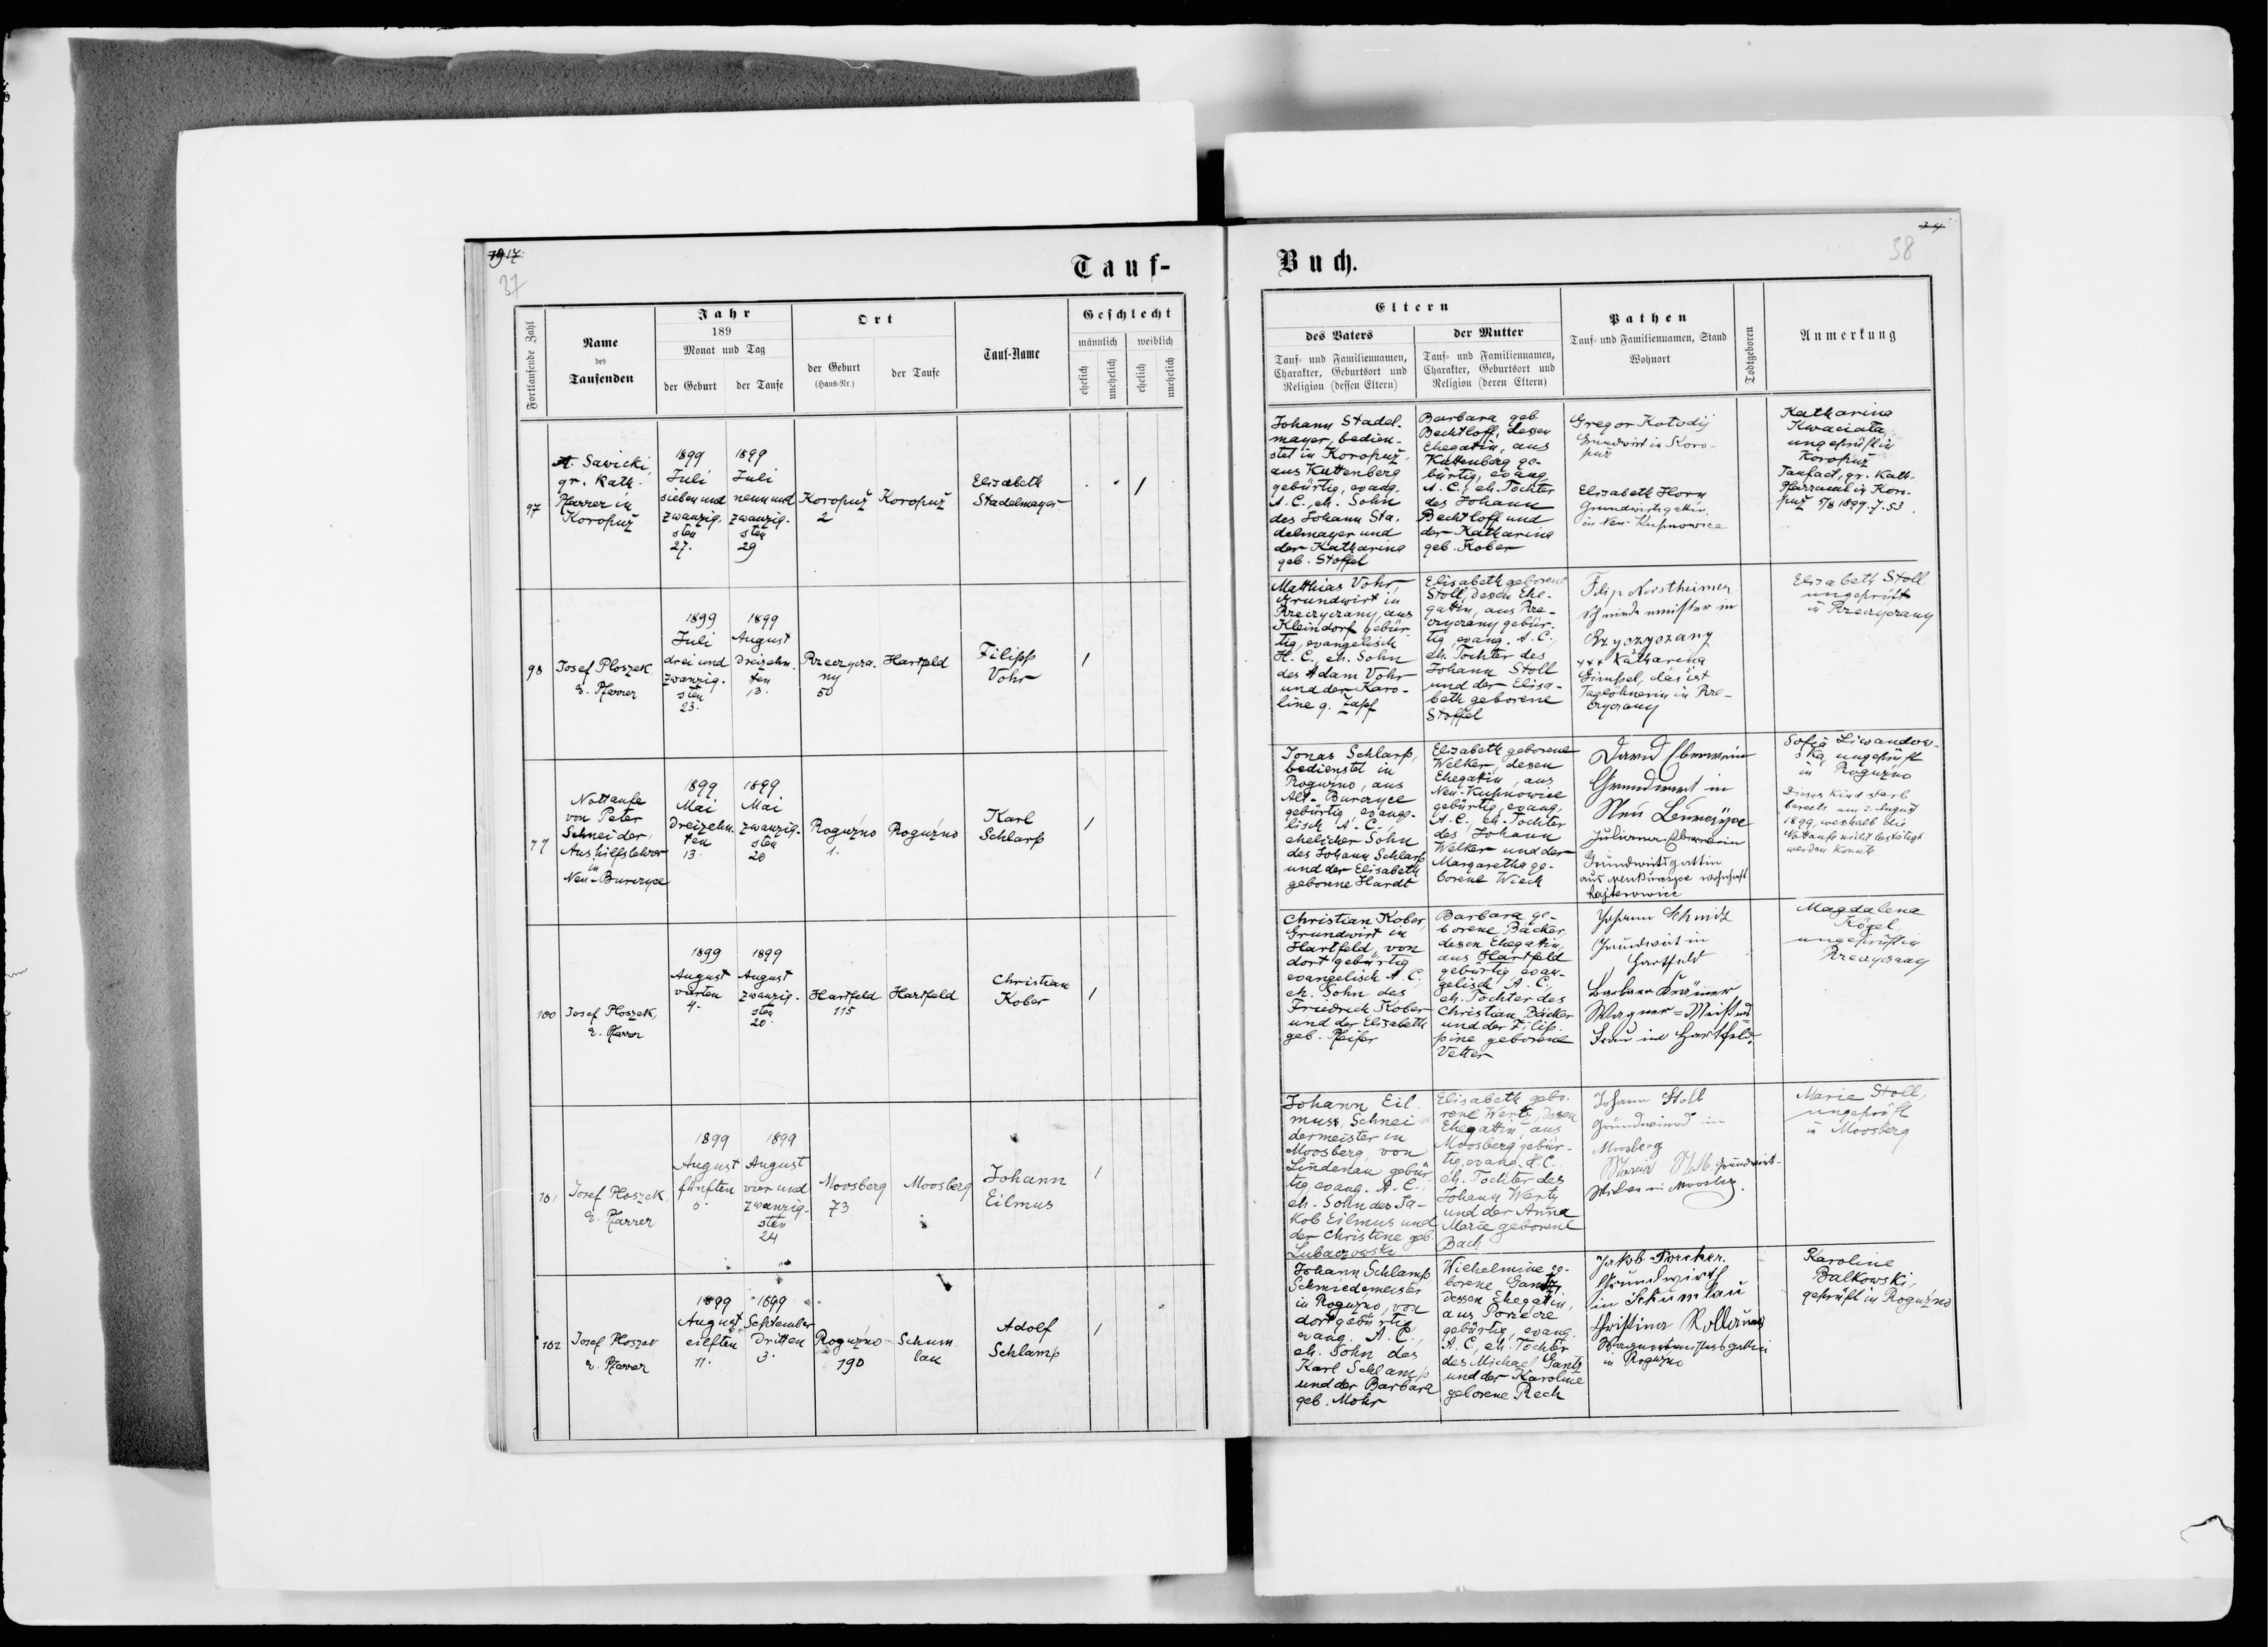 37
38
Tauf-
Buch.
Fortlaufende Zahl
Name
des
Taufenden
Jahr
189
Monat und Tag
der Geburt
der Taufe
Ort
der Geburt
(Haus-Nr.)
der Taufe
Tauf-Name
Geschlecht
männlich
weiblich
ehelich
unehelich
ehelich
unehelich
Eltern
des Vaters
Tauf- und Familiennamen,
Charakter, Geburtsort und
Religion (dessen Eltern)
der Mutter
Tauf- und Familiennamen,
Charakter, Geburtsort und
Religion (deren Eltern)
Pathen
Tauf- und Familiennamen, Stand
Wohnort
Todtgeboren
Anmerkung
97
A. Sawicki,
gr. kath.
Pfarrer in
Koropuž
1899
Juli
sieben und
zwanzig-
sten
27.
1899
Juli
neun und
zwanzig-
sten
29
Koropuž
2
Koropuž
Elisabeth
Stadelmayer
/
Johann Stadel-
mayer, bedien-
stet in Koropuž
aus Kuttenberg
gebürtig, evang.
A. C., eh. Sohn
des Johann Sta-
delmayer und
der Katharina
geb. Stoffel
Barbara geb.
Bechtloff, dessen
Ehegatin, aus
Kuttenberg ge-
bürtig, evang.
A. C., eh. Tochter
des Johann
Bechtloff und
der Katharina
geb. Kober
Gregor Kotodij
Grundwirt in Koro-
puž
Elisabeth Horn
Grundwirtsgattin
in Neu-Kupnowice
Katharina
Kwaciata
ungeprüft in
Koropuž
Taufact, gr. kath.
Pfarramt in Kor-
puž 5/8 1899. 7. 53.
98
Josef Ploszek
e. Pfarrer
1899
Juli
drei und
zwanzig-
sten
23.
1899
August
dreizehn-
ten
13.
Przeczycza-
ny
50
Hartfeld
Filipp
Vohr
/
Matthias Vohr,
Grundwirt in
Przeczyczany, aus
Kleindorf gebür-
tig, evangelisch
H. C., eh. Sohn
des Adam Vohr
und der Karo-
line g. Zapf
Elisabeth geborene
Stoll, dessen Ehe-
gattin, aus Prze-
czyczany gebür-
tig, evang. A. C.,
eh. Tochter des
Johann Stoll
und der Elisa-
beth geborene
Stoffel
Filip
Schmiedemeister in
+++ Katharina
das ist
Taglöhnerin in Prze-
czyczany
Elisabeth Stoll
ungeprüft
in Przeczyczany
Nottaufe
von Peter
Schneider,
Aushilfslehrer
in
Neu-Burczyce
1899
Mai
dreizehn-
ten
13.
1899
Mai
zwanzig-
sten
20
Roguźno
1.
Roguźno
Karl
Schlarp
/
Jonas Schlarp,
bedienstet in
Roguźno, aus
Alt-Burczyce
gebürtig, evange-
lisch A. C.,
ehelicher Sohn
des Johann Schlarp
und der Elisabeth
geborene Hardt
Elisabeth geborene
Welker, dessen
Ehegatin, aus
Neu-Kupnowice
gebürtig, evang.
A. C., eh. Tochter
des Johann
Welker und der
Margaretha ge-
borene Wiech
Grundwirt in
Neu
Juliana
Grundwirtsgattin
Sofia Liwandow-
ska, ungeprüft
in Roguźno
Dieses Kind starb
bereits am 2. August
1899, weshalb die
Nottaufe nicht bestätigt
werden konnte
100
Josef Ploszek,
e. Pfarrer
1899
August
vierten
4.
1899
August
zwanzig-
sten
20.
Hartfeld
115
Hartfeld
Christian
Kober
/
Christian Kober,
Grundwirt in
Hartfeld, von
dort gebürtig
evangelisch A. C.,
eh. Sohn des
Friedrich Kober
und der Elisabeth
geb. Pfeifer
Barbara ge-
borene Bäcker,
dessen Ehegatin,
aus Hartfeld
gebürtig, evan-
gelisch A. C.,
eh. Tochter des
Christian Bäcker
und der Filip-
pine geborene
Vetter
Johann Schmitz
Grundwirt in
Hartfeld
Barbara Krämer
Wagner-Meisters
Frau in Hartfeld.
Magdalena
Kögel
ungeprüft in
Przeczyczany
101
Josef Ploszek,
e. Pfarrer
1899
August
fünften
5.
1899
August
vier und
zwanzig-
sten
24
Moosberg
73
Moosberg
Johann
Eilmus
/
Johann Eil-
mus, Schnei-
dermeister in
Moosberg, von
Lindenau gebür-
tig, evang. A. C.,
eh. Sohn des Ja-
kob Eilmus und
der Christine geb.
Lubaczowski
Elisabeth gebo-
rene Wertz, dessen
Ehegattin, aus
Moosberg gebür-
tig, evang. H. C.
eh. Tochter des
Johann Wertz
und der Anna
Marie geborene
Bach
Johann Stoll
Grundwirt in
Moosberg
Maria Stoll, Grundwirts-
in Moosberg.
Marie Stoll,
ungeprüft
in Moosberg
102
Josef Ploszek
e. Pfarrer
1899
August
eilften
11.
1899
September
dritten
3.
Roguźno
190
Schum-
lau
Adolf
Schlamp
/
Johann Schlamp
Schmiedemeister
in Roguźno, von
dort gebürtig
evang. A. C.,
eh. Sohn des
Karl Schlamp
und der Barbara
geb. Mohr
Wilhelmine ge-
borene Gantz,
dessen Ehegatin,
aus Porzecze
gebürtig, evang.
A. C., eh. Tochter
des Michael Gantz
und der Karoline
geborene Rech
Jakob
Grundwirth
in Schumlau
Christina
Wagnermeistersgattin
in Roguźno
Karoline
Balkowski,
geprüft in Roguźno